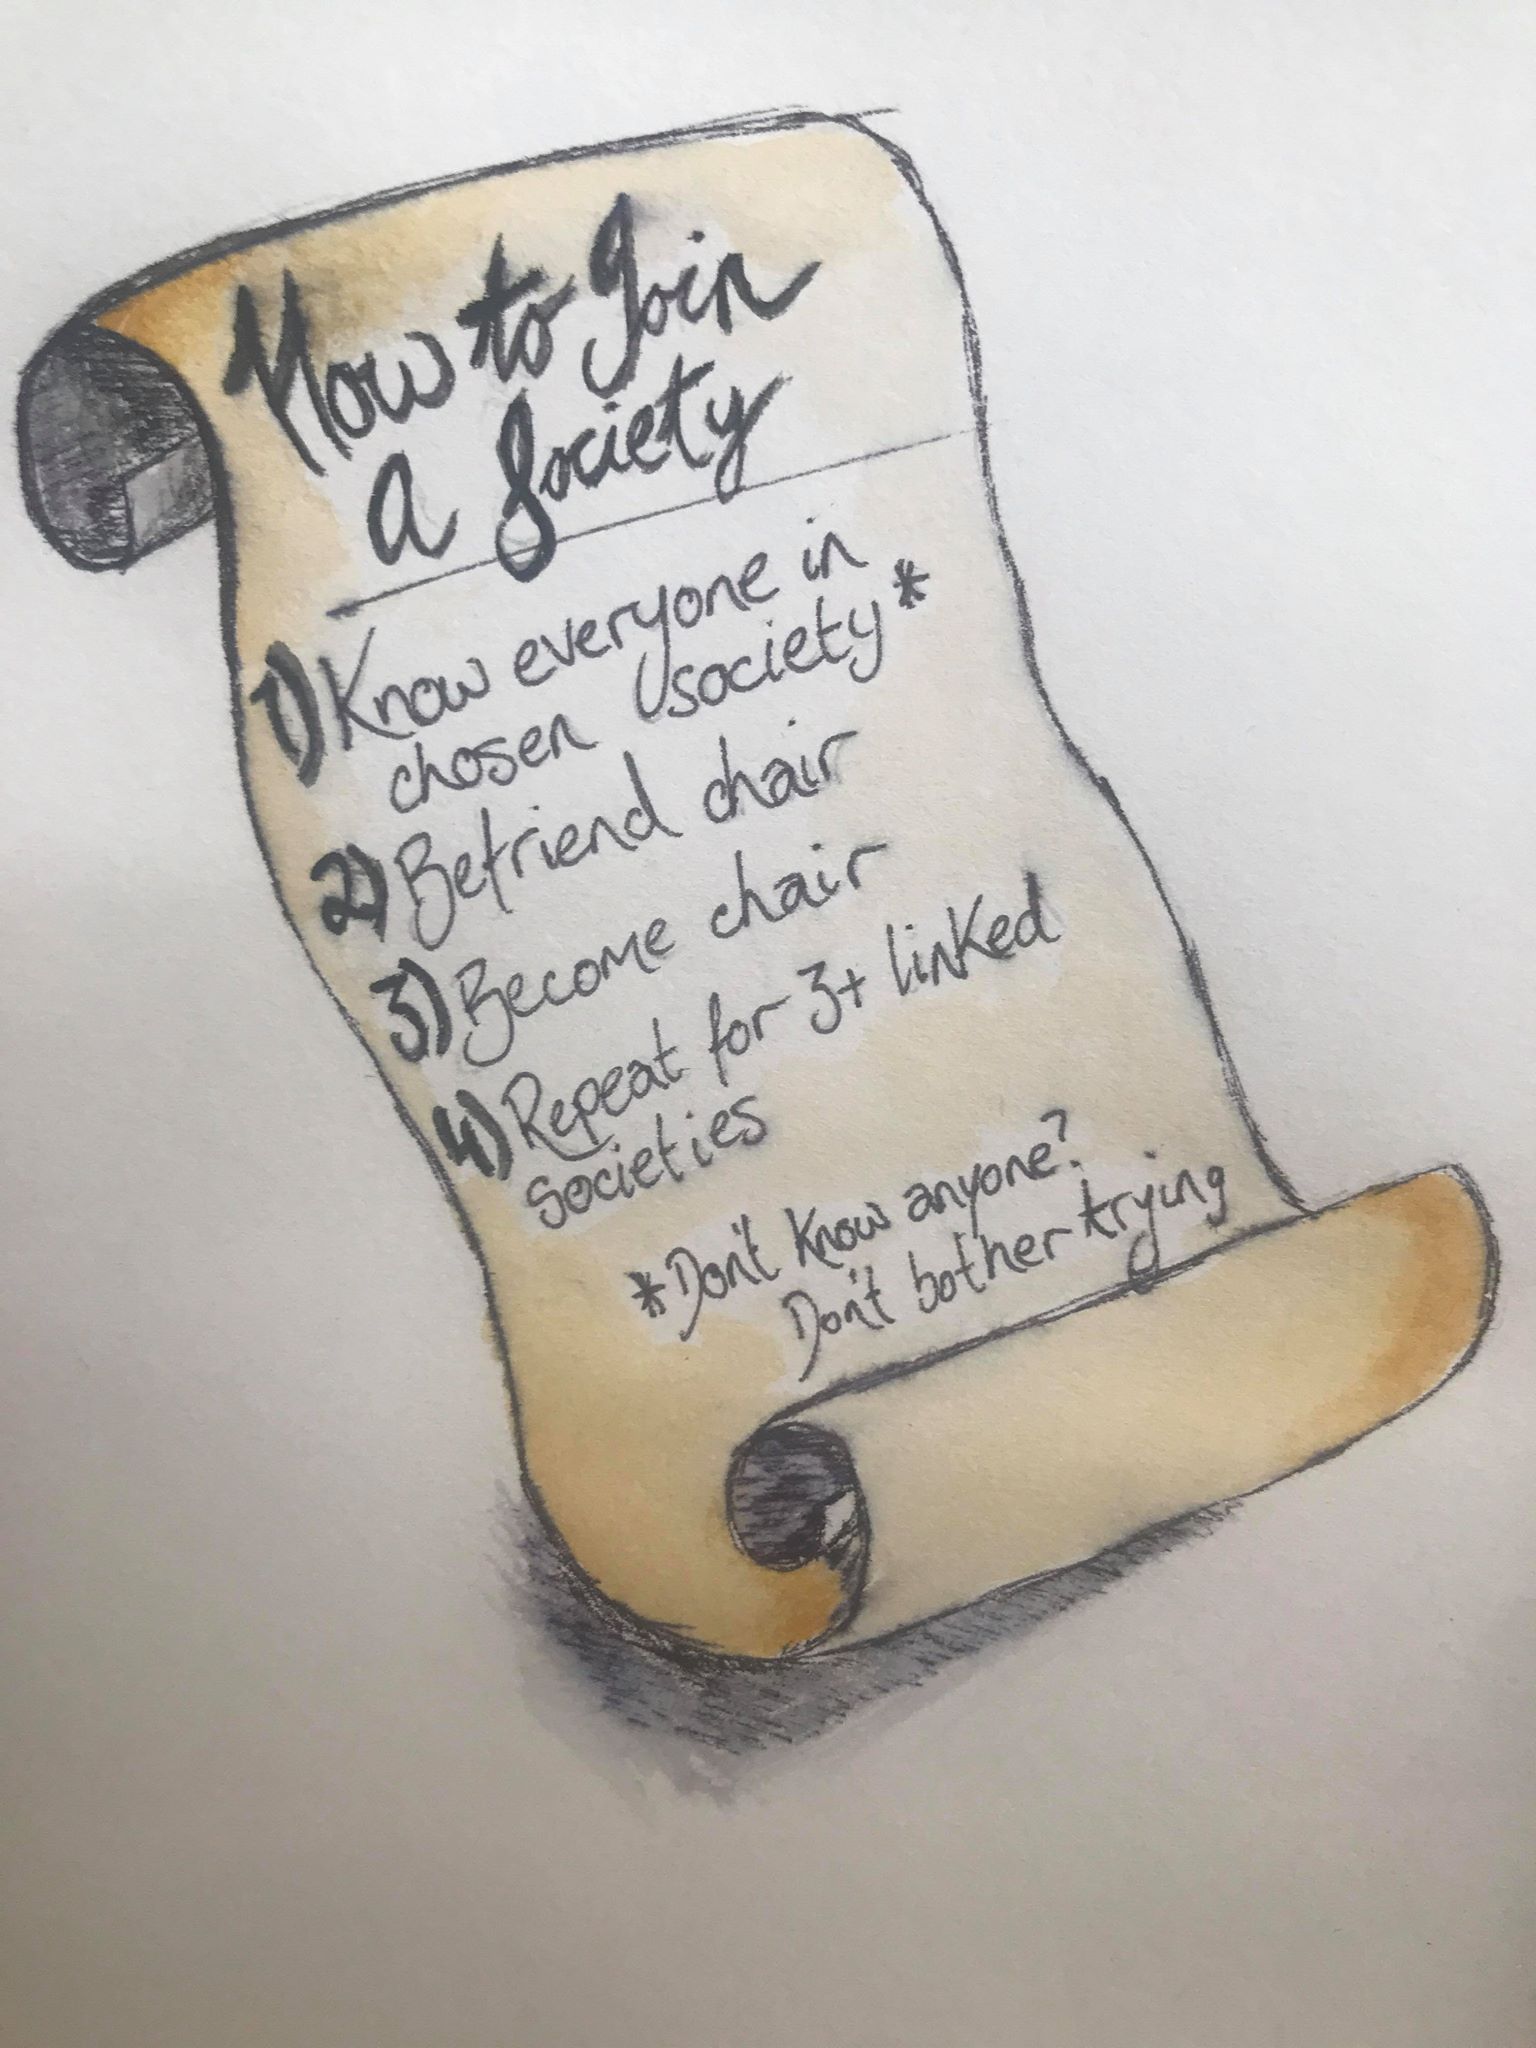 How to Join
A Society
1) Know everyone in
chosen society*
2) Befriend chair
3) Become chair
4) Repeat for 3+ linked
societies
*Don't know anyone?
Don't bother trying